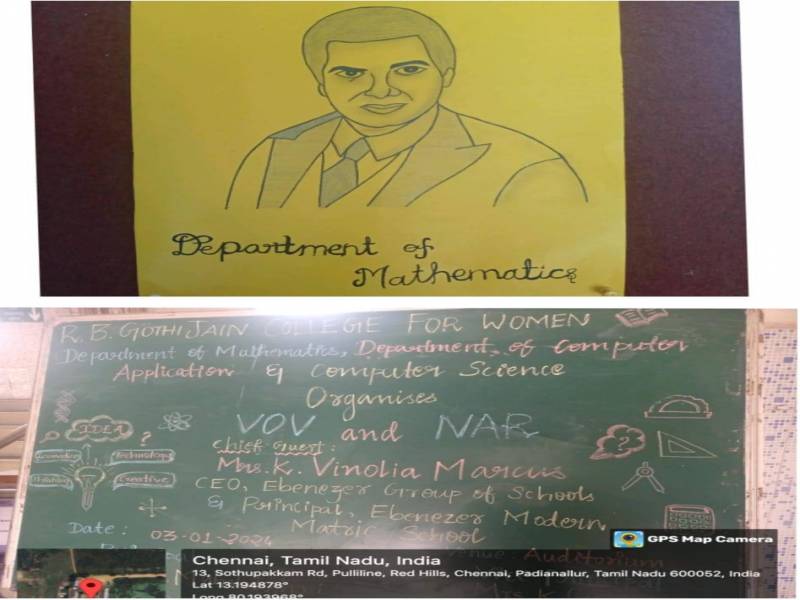 Department of
Mathematics
R. B. GOTHI JAIN COLLEGE FOR WOMEN
Department of Mathematics, Department of Computer
Application & Computer Science
Organises
VOV and NAR
Chief Guest:
Mrs. K. Vinolia Marcus
CEO, Ebenezer Group of Schools
& Principal, Ebenezer Modern
Matric School
IDEA
?
Technology
Creative
?
Date: 03-01-2024
Auditorium
GPS Map Camera
Chennai, Tamil Nadu, India
13, Sothupakkam Rd, Pulliline, Red Hills, Chennai, Padianallur, Tamil Nadu 600052, India
Lat 13.194878°
Long 80.193968°